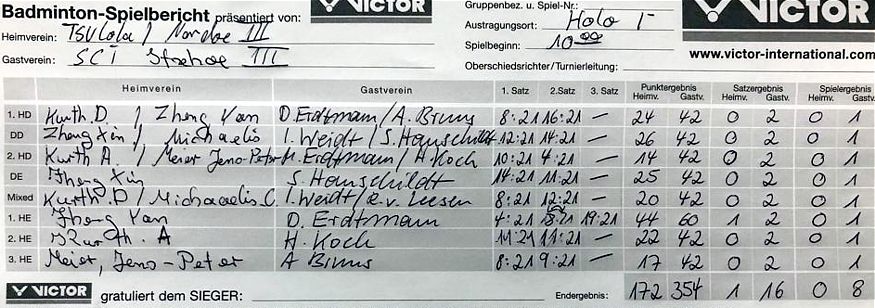 Badminton-Spielbericht präsentiert von: VICTOR Gruppenbez. u. Spiel-Nr.: VICTOR
Heimverein: III Austragungsort:
Gastverein: SCI III Spielbeginn: 10 00 www.victor-international.com
Oberschiedsrichter/Turnierleitung:
Heimverein Gastverein 1. Satz 2.Satz 3. Satz Punktergebnis Satzergebnis Spielergebnis
Heimv. Gastv. Heimv. Gastv. Heimv. Gastv.
1. HD Kurth D. / Zheng Yan D. Erdtmann / A. Bruns 8:21 16:21 — 24 42 0 2 0 1
DD Zheng Xin / Michaelis I. Weidt / S. Hanschildt 12:21 14:21 — 26 42 0 2 0 1
2. HD Kurth A. / Meier Jens-Peter M. Erdtmann / H. Koch 10:21 4:21 — 14 42 0 2 0 1
DE Zheng Xin S. Hanschildt 14:21 11:21 — 25 42 0 2 0 1
Mixed Kurth D / Michaelis C. I. Weidt / e. v. Leesen 8:21 12:21 — 20 42 0 2 0 1
1. HE Zheng Yan D. Erdtmann 4:21 19:21 44 60 1 2 0 1
2. HE Kurth. A H. Koch 11:21 11:21 — 22 42 0 2 0 1
3. HE Meier, Jens-Peter A Bruns 8:21 9:21 — 17 42 0 2 0 1
VICTOR gratuliert dem SIEGER: Endergebnis: 172 354 1 16 0 8